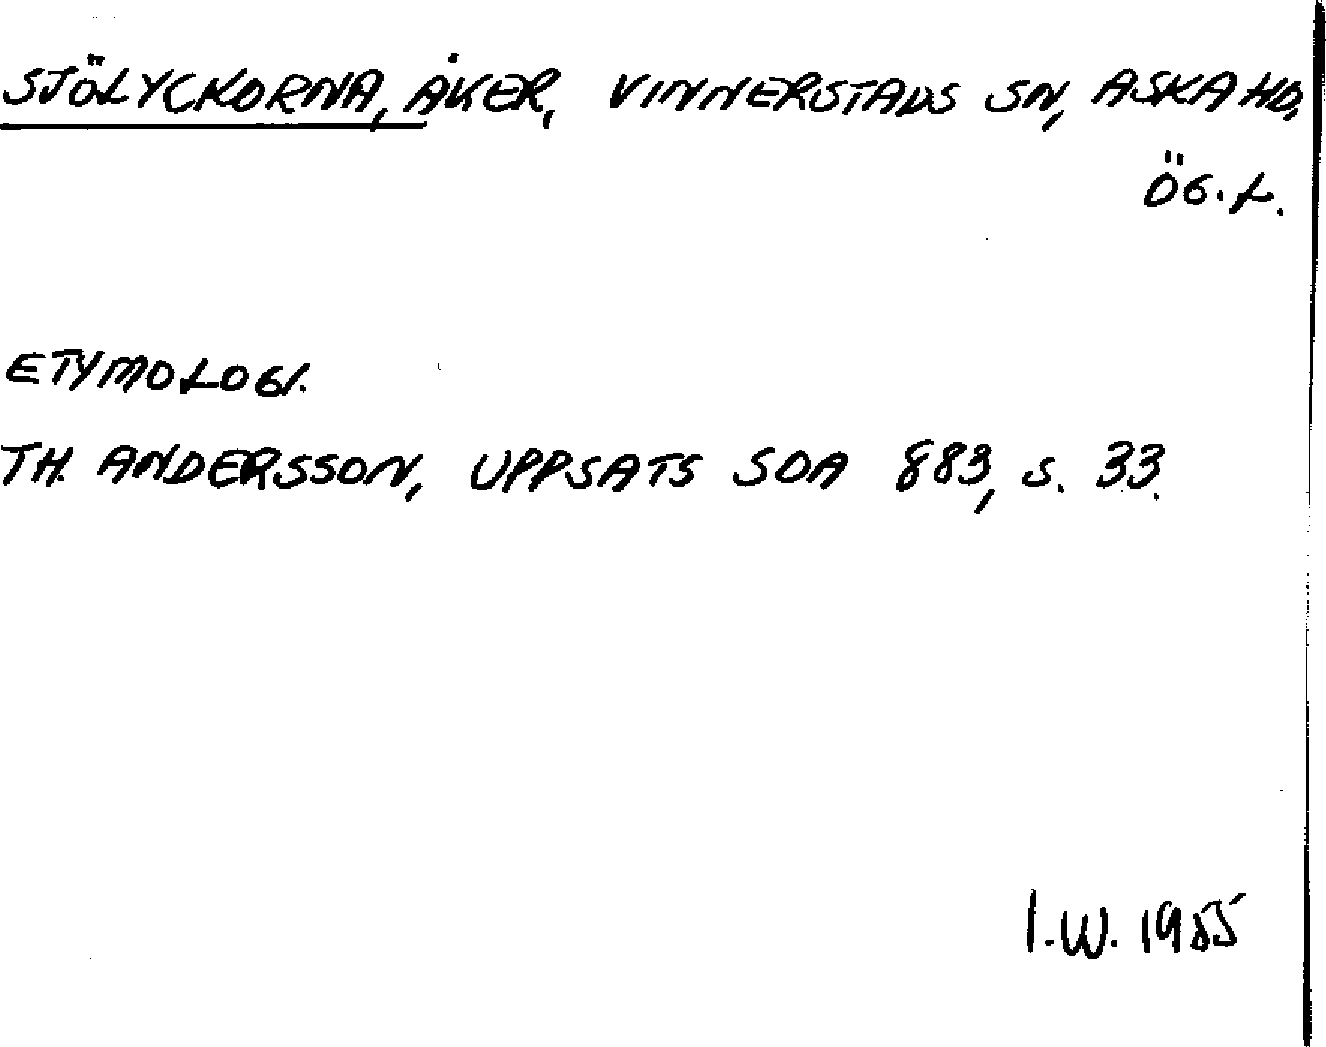 SJÖLYCKORNA, ÅKER, VINNERSTADS SN, ASKA HD,
ÖG.L.
ETYMOLOGI.
TH. ANDERSSON, UPPSATS SOA 883, S. 33.
I.W. 1955